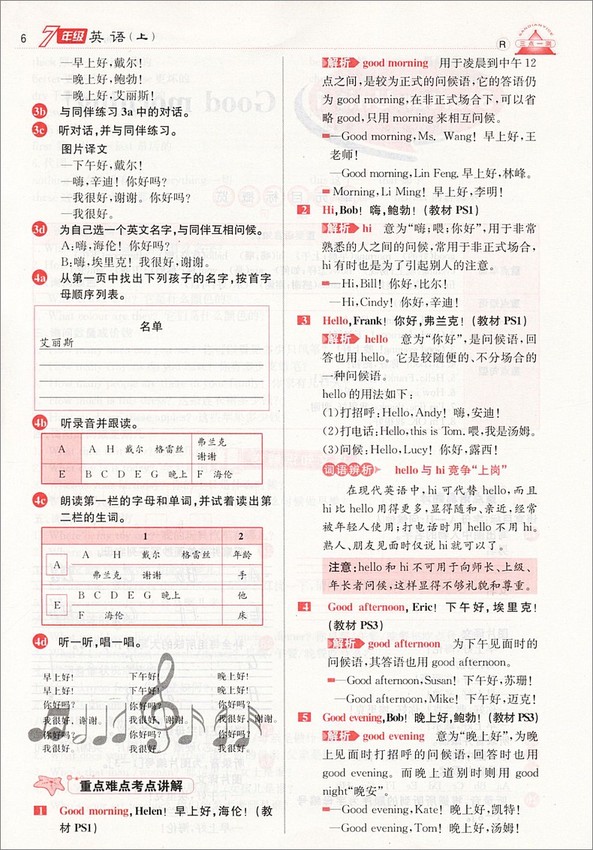 6 7年级 英语(上)
—早上好,戴尔!
—晚上好,鲍勃!
—晚上好,艾丽斯!
3b 与同伴练习 3a 中的对话。
3c 听对话,并与同伴练习。
图片译文
—下午好,戴尔!
—嗨,辛迪!你好吗?
—我很好,谢谢。你好吗?
—我很好。
3d 为自己选一个英文名字,与同伴互相问候。
A:嗨,海伦!你好吗?
B:嗨,埃里克!我很好,谢谢。
4a 从第一页中找出下列孩子的名字,按首字
母顺序列表。
名单
艾丽斯
4b 听录音并跟读。
A A H 戴尔 格雷丝 弗兰克
谢谢
E B C D E G 晚上 F 海伦
4c 朗读第一栏的字母和单词,并试着读出第
二栏的生词。
1 2
A A H 戴尔 格雷丝 年龄
弗兰克 谢谢 手
E B C D E G 晚上 他
F 海伦 床
4d 听一听,唱一唱。
早上好! 下午好! 晚上好!
早上好! 下午好! 晚上好!
你好吗? 你好吗? 你好吗?
我很好,谢谢。 我很好,谢谢。 我很好,谢谢。
你好吗? 你好吗? 你好吗?
我很好。 我很好。 我很好。
重点难点考点讲解
1 Good morning, Helen! 早上好,海伦!(教
材 PS1)
R 三点一测
解析 good morning 用于凌晨到中午 12
点之间,是较为正式的问候语,它的答语仍
为 good morning,在非正式场合下,可以省
略 good,只用 morning 来相互问候。
—Good morning, Ms. Wang! 早上好,王
老师!
—Good morning, Lin Feng. 早上好,林峰。
Morning, Li Ming! 早上好,李明!
2 Hi, Bob! 嗨,鲍勃!(教材 PS1)
解析 hi 意为“嗨;喂;你好”,用于非常
熟悉的人之间的问候,常用于非正式场合,
hi 有时也是为了引起别人的注意。
—Hi, Bill! 你好,比尔!
—Hi, Cindy! 你好,辛迪!
3 Hello, Frank! 你好,弗兰克!(教材 PS1)
解析 hello 意为“你好”,是问候语,回
答也用 hello。它是较随便的、不分场合的
一种问候语。
hello 的用法如下:
(1)打招呼:Hello, Andy! 嗨,安迪!
(2)打电话:Hello, this is Tom. 喂,我是汤姆。
(3)问候:Hello, Lucy! 你好,露西!
词语辨析 hello 与 hi 竞争“上岗”
在现代英语中,hi 可代替 hello,而且
hi 比 hello 用得更多,显得随和、亲近,经常
被年轻人使用;打电话时用 hello 不用 hi。
熟人、朋友见面时仅说 hi 就可以了。
注意:hello 和 hi 不可用于向师长、上级、
年长者问候,这样显得不够礼貌和尊重。
4 Good afternoon, Eric! 下午好,埃里克!
(教材 PS3)
解析 good afternoon 为下午见面时的
问候语,其答语也用 good afternoon。
—Good afternoon, Susan! 下午好,苏珊!
—Good afternoon, Mike! 下午好,迈克!
5 Good evening, Bob! 晚上好,鲍勃!(教材 PS3)
解析 good evening 意为“晚上好”,为晚
上见面时打招呼的问候语,回答时也用
good evening. 而晚上道别时则用 good
night“晚安”。
—Good evening, Kate! 晚上好,凯特!
—Good evening, Tom! 晚上好,汤姆!